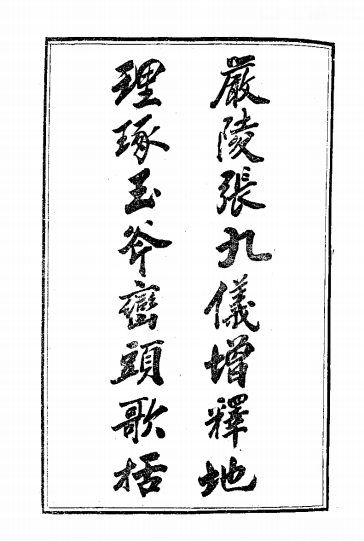 嚴陵張九儀增釋地
理琢玉斧巒頭歌括